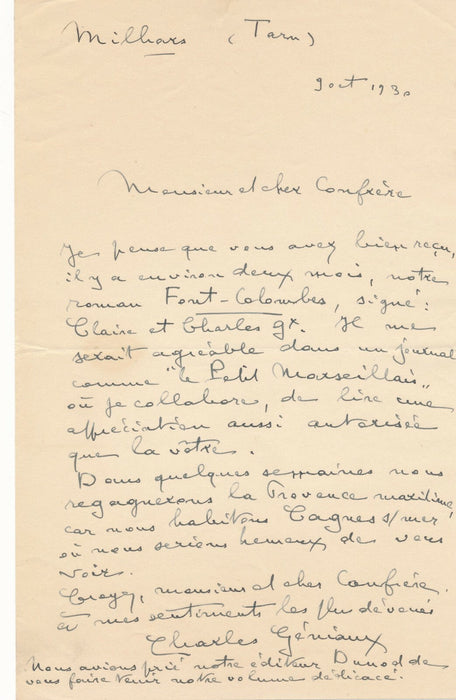 Milhars (Tarn)
9 oct 1930
Monsieur et cher Confrère
Je pense que vous avez bien reçu,
il y a environ deux mois, notre
roman Font-Colombes, signé :
Claire et Charles Gx. Il me
serait agréable dans un journal
comme "le Petit Marseillais"
où je collabore, de lire une
appréciation aussi autorisée
que la vôtre.
Dans quelques semaines nous
regagnerons la Provence maritime,
car nous habitons Cagnes s/mer
où nous serions heureux de vous
voir.
Croyez, monsieur et cher Confrère,
à mes sentiments les plus dévoués
Charles Géniaux
Nous avions prié notre éditeur Dunod de
vous faire tenir notre volume dédicacé.